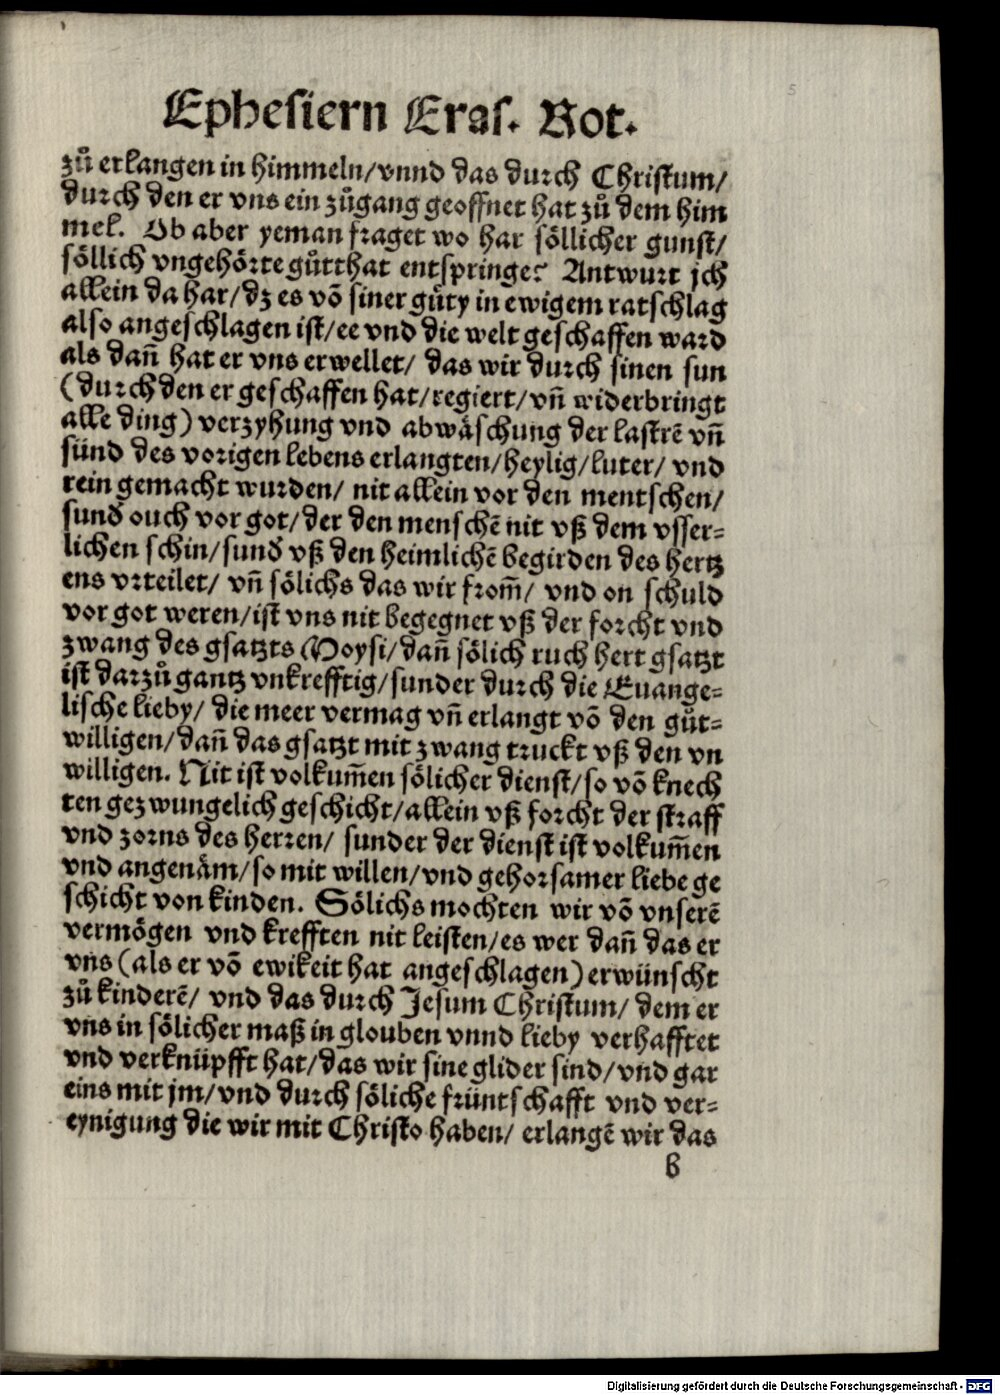 5
Ephesiern Eras. Rot.
zů erlangen in himmeln/vnnd das durch Christum/
durch den er vns ein zůgang geoffnet hat zů dem him
mel. Ob aber yeman fraget wo har söllicher gunst/
söllich vngehörte gůtthat entspringe? Antwurt jch
allein da har/dz es võ siner gůty in ewigem ratschlag
also angeschlagen ist/ee vnd die welt geschaffen ward
als dañ hat er vns erwellet/ das wir durch sinen sun
(durch den er geschaffen hat/regiert/vñ widerbringt
alle ding) verzyhung vnd abwäschung der lastrẽ vñ
sünd des vorigen lebens erlangten/heylig/luter/ vnd
rein gemacht wurden/ nit allein vor den mentschen/
sund ouch vor got/der den menschẽ nit vß dem vsser-
lichen schin/sund vß den heimlichẽ begirden des hertz
ens vrteilet/ vñ sölichs das wir from̃/ vnd on schuld
vor got weren/ist vns nit begegnet vß der forcht vnd
zwang des gsatzts Moysi/dañ sölich ruch hert gsatzt
ist darzů gantz vnkrefftig/sunder durch die Euange-
lische lieby/ die meer vermag vñ erlangt võ den gůt-
willigen/dañ das gsatzt mit zwang truckt vß den vn
willigen. Nit ist volkum̃en sölicher dienst/so võ knech
ten gezwungelich geschicht/allein vß forcht der straff
vnd zorns des herren/ sunder der dienst ist volkum̃en
vnd angenäm/so mit willen/vnd gehorsamer liebe ge
schicht von kinden. Sölichs mochten wir võ vnserẽ
vermögen vnd krefften nit leisten/es wer dañ das er
vns (als er võ ewikeit hat angeschlagen) erwünscht
zů kinderẽ/ vnd das durch Jesum Christum/ dem er
vns in sölicher maß in glouben vnnd lieby verhafftet
vnd verknüpfft hat/das wir sine glider sind/vnd gar
eins mit jm/vnd durch söliche früntschafft vnd ver-
eynigung die wir mit Christo haben/ erlangẽ wir das
b
Digitalisierung gefördert durch die Deutsche Forschungsgemeinschaft - DFG